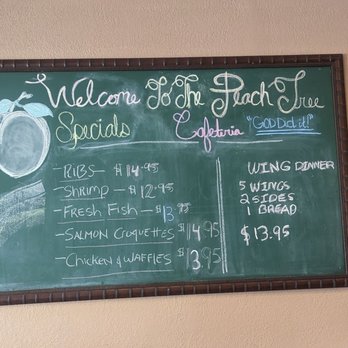 Welcome To The Peach Tree
Specials Cafeteria "GOD Did it!"
- RiBS - $14.95
- Shrimp - $12.95
- FRESH Fish - $13.95
- SALMON CROQUETTES $14.95
- CHICKEN & WAFFLES $13.95
WING DINNER
5 WINGS
2 SIDES
1 BREAD
$13.95